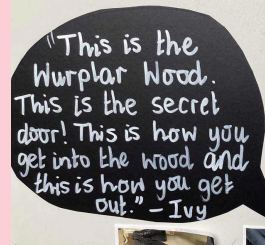 "This is the
Wurplar Wood.
This is the secret
door! This is how you
get into the wood and
this is how you get
out." – Ivy